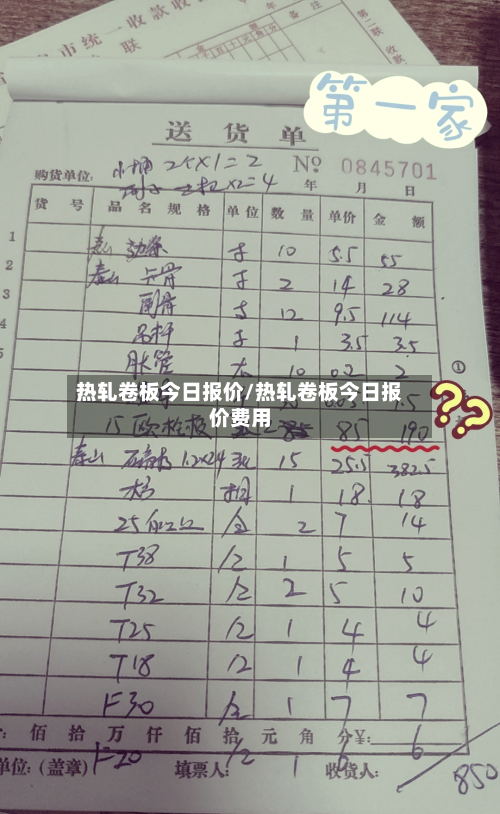 市统一收款收
联
备注
第二联
收款
第一家
送货单
小桶 25×1=2
购货单位:
×2=4
No 0845701
年 月 日
货号 品名规格 单位 数量 单价 金额
1 泰山 副条 10 5.5 55
2 泰山 卡骨 2 14 28
3 副骨 12 9.5 114
4 吊杆 1 3.5 3.5
5 胀管 10 0.2 2
①
热轧卷板今日报价/热轧卷板今日报
价费用
??
15 欧松板 85 190
泰山 石膏板 1.2×2.4 张 15 25.5 382.5
1 18 18
2 7 14
T38 1 5 5
T32 2 5 10
T25 1 4 4
T18 1 4 4
F30 1 7 7
佰拾万仟佰拾元角分¥:
F20 1 6 6
单位:(盖章) 填票人: 收货人:
850